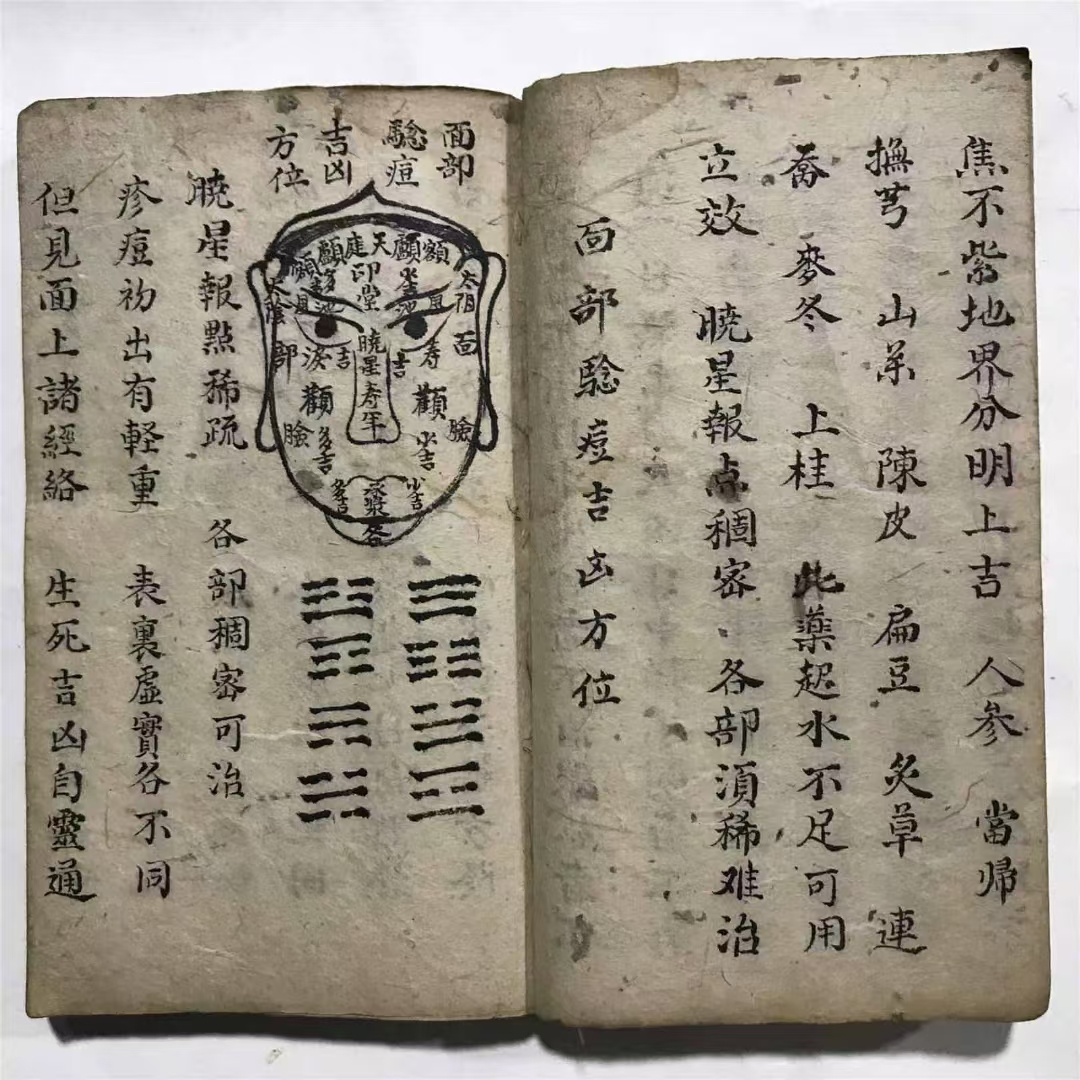 焦不紫地界分明上吉 人參 當归
撫芎 山茶 陳皮 扁豆 炙草 連
喬 麥冬 上桂 此藥起水不足可用
立效 曉星報点稠密 各部須稀难治
面部騐痘吉凶方位
面部
騐痘
吉凶
方位
額
顱
天
庭
顱
太陽
太陰
印堂
面
部
曉星
寿年
寿
吉
吉
顴
顴
臉
臉
小吉
多吉
小吉
多吉
承漿
各
曉星報點稀疏 各部稠密可治
疹痘初出有軽重 表裏虛實各不同
但見面上諸經絡 生死吉凶自靈通